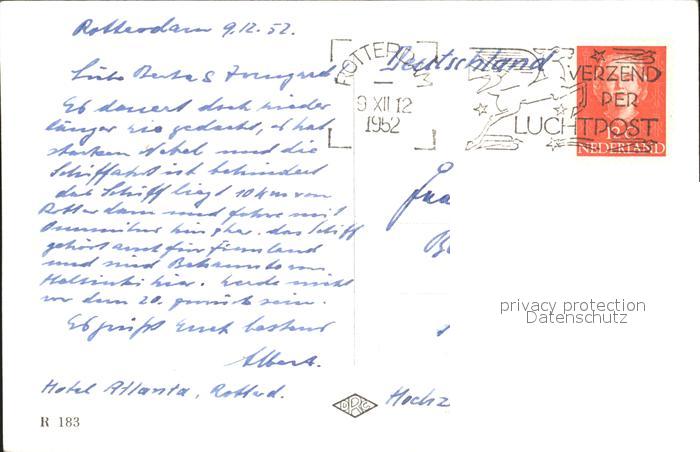 Rotterdam 9.12.52.
Liebe Berta & Irmgard
Es dauert doch wieder
länger wie gedacht, es hat
starken Nebel und die
Schiffahrt ist behindert
das Schiff liegt 10 km von
Rotterdam und fahre mit
Omnibus hin & her. das Schiff
gehört auch für Finnland
und sind Bekannte von
Helsinki hier. werde nicht
vor dem 20. zurück sein.
Es grüßt Euch bestens
Albert.
Hotel Atlanta, Rotterd.
R 183
ROTTER
9 XII 12
1952
Deutschland
VERZEND
PER
LUCHTPOST
NEDERLAND
Fra
privacy protection
Datenschutz
Hochz